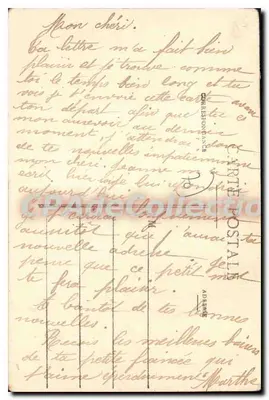 Mon chéri.
Ta lettre m'a fait bien
plaisir et je trouve comme
toi le temps bien long et tu
vois je t'envoie cette carte avant
ton départ afin que tu
mon au dernier
moment j'attendrai donc
de tes nouvelles impatiemment
mon chéri. Jeanne m'a
hier
aujourd'hui
CPADeCollection.com
aussitôt que j'aurai ta
nouvelle adresse. Je
pense que ce petit mot
te fera plaisir.
A bientôt de tes bonnes
nouvelles.
Reçois les meilleurs baisers
de ta petite fiancée qui
t'aime éperdument Marthe
CARTE POSTALE
CORRESPONDANCE
ADRESSE